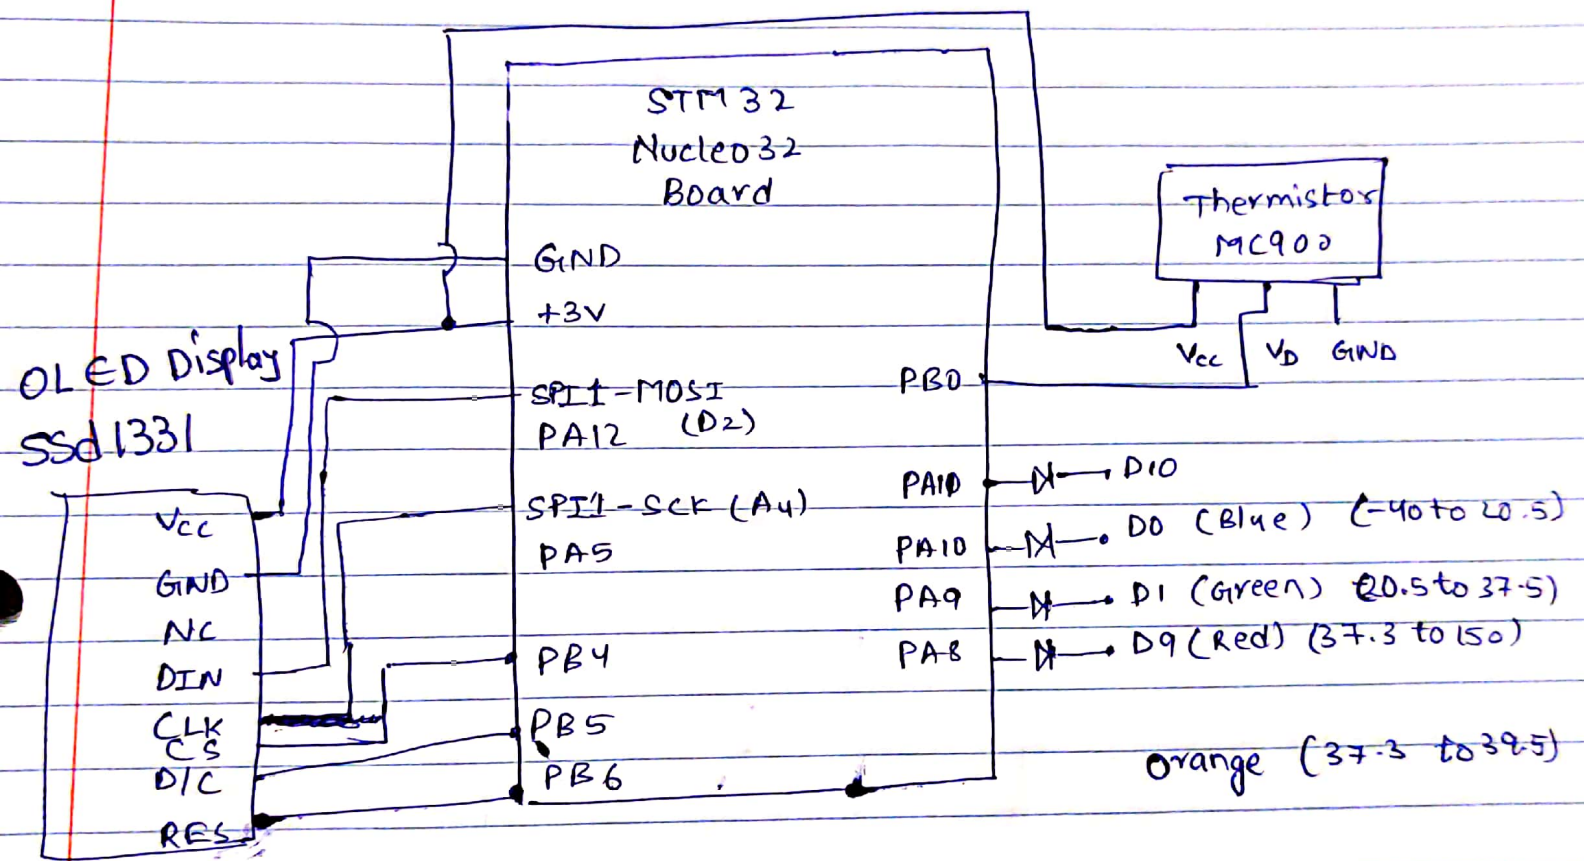 STM32
Nucleo32
Board
GND
+3V
SPI1-MOSI
(D2)
PA12
SPI1-SCK (A4)
PA5
PB4
PB5
PB6
PB0
PA10
PA10
PA9
PA8
Thermistor
MC900
Vcc VD GND
D10
D0 (Blue) (-40 to 20.5)
D1 (Green) (20.5 to 37.5)
D9 (Red) (37.3 to 150)
orange (37.3 to 39.5)
OLED Display
SSd1331
Vcc
GND
NC
DIN
CLK
CS
D/C
RES